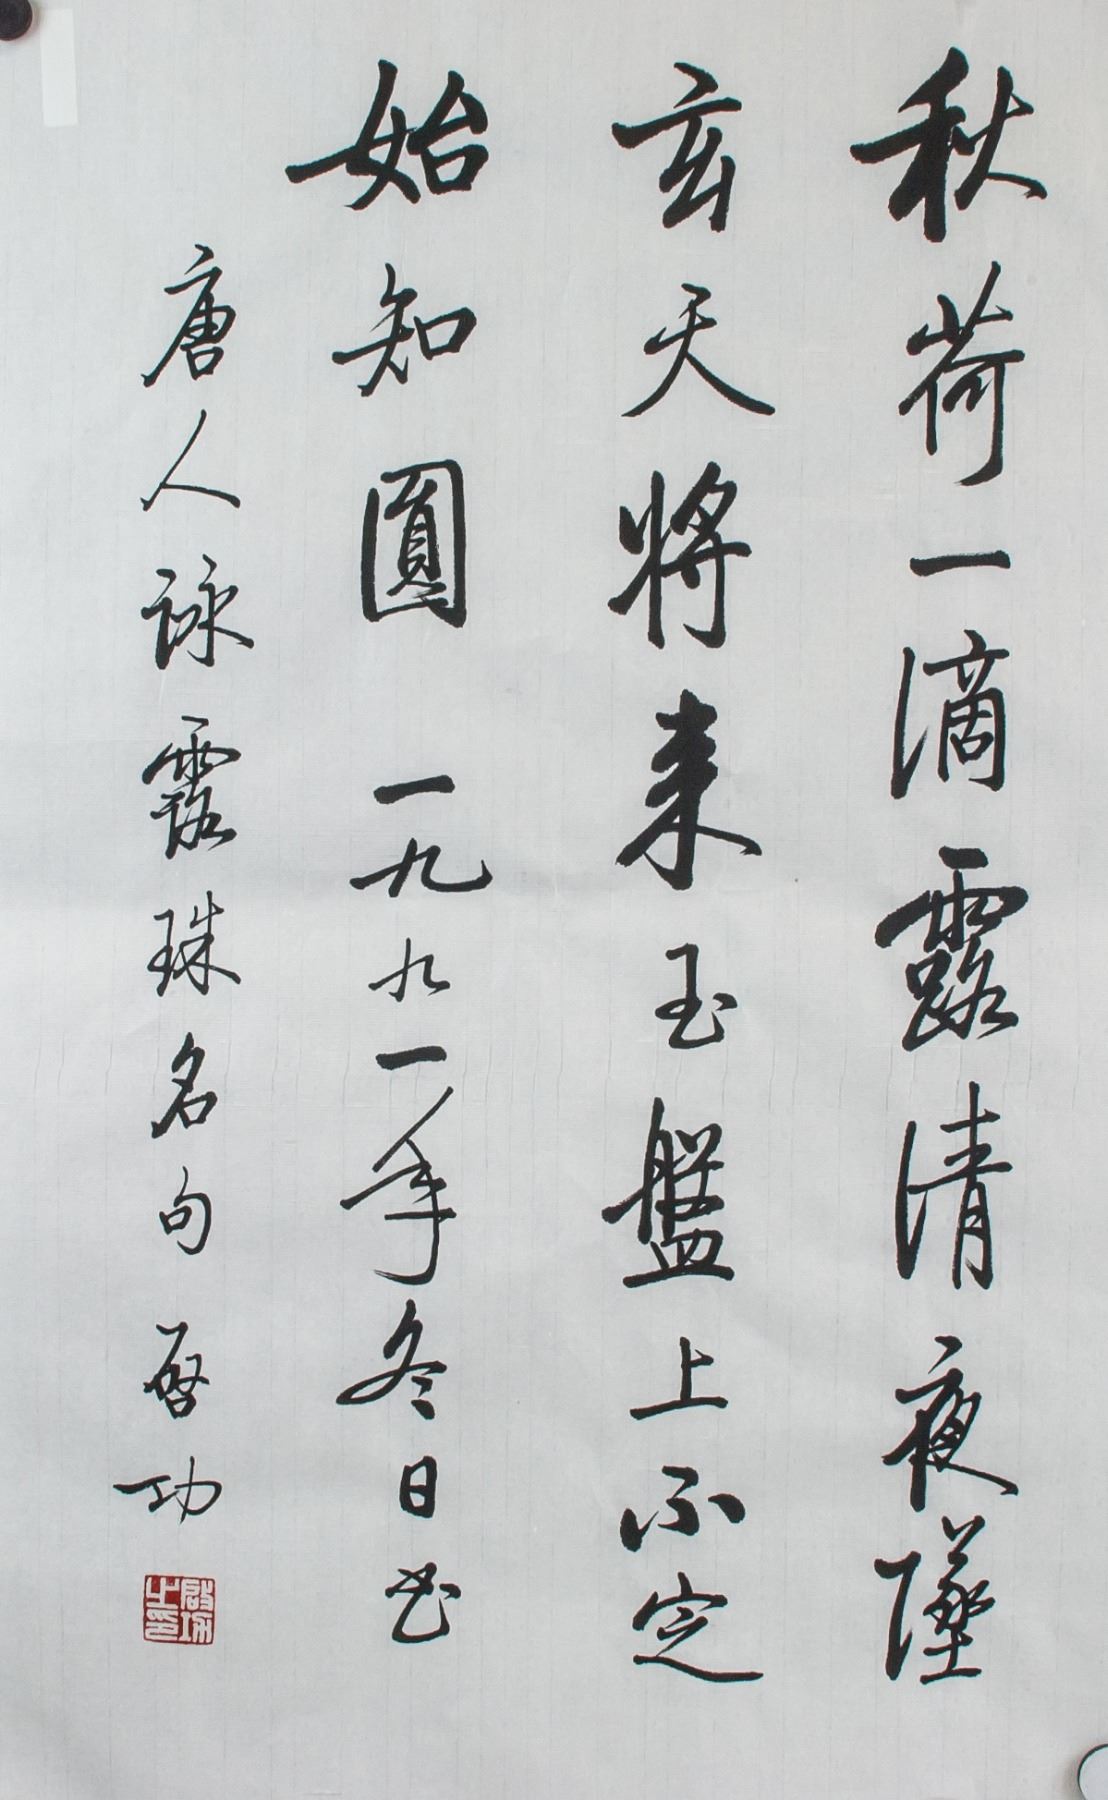 秋荷一滴露清夜墜
玄天将来玉盤上不定
始知圓 一九九一年冬日书
唐人詠露珠名句 启功
啟功之印